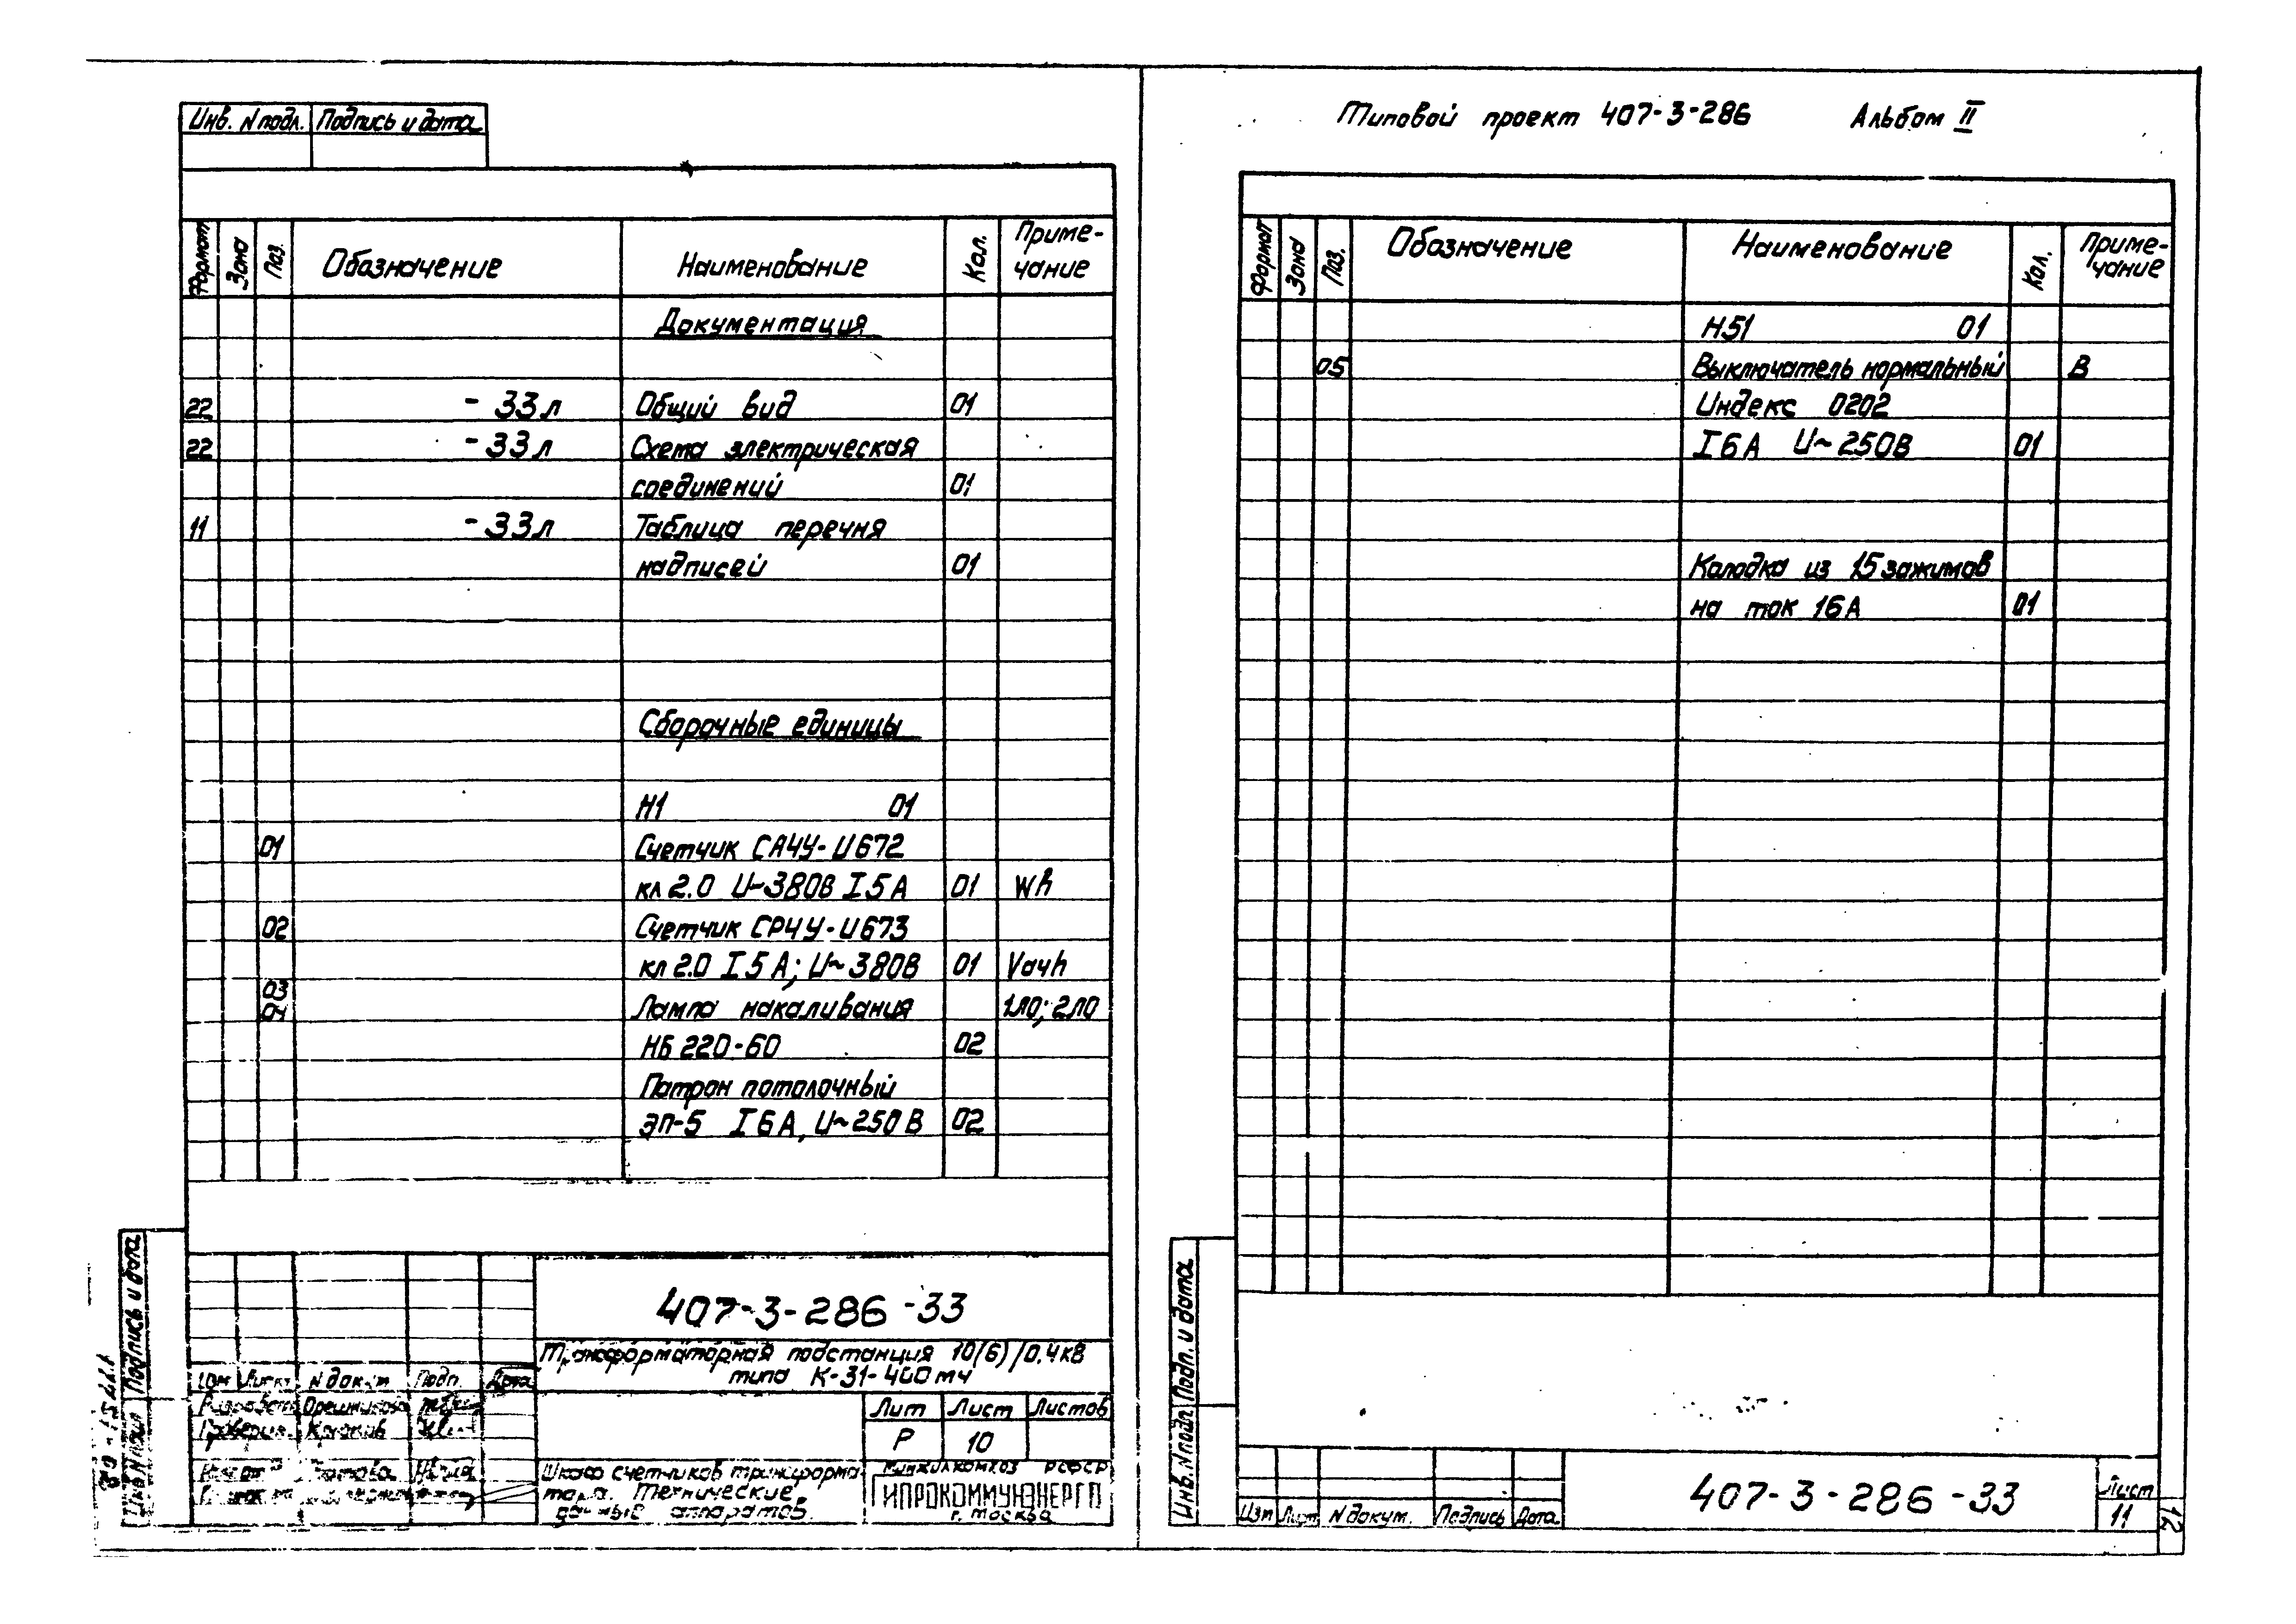 Инв. N подл. Подпись и дата
Формат Зона Поз. Обозначение Наименование Кол. Приме-
чание
Документация
22 - 33 л Общий вид 01
22 - 33 л Схема электрическая
соединений 01
11 - 33 л Таблица перечня
надписей 01
Сборочные единицы
Н1 01
01 Счетчик СА4У-И672
кл 2.0 U~380В I 5 А 01 Wh
02 Счетчик СР4У-И673
кл 2.0 I 5 А; U~380В 01 Varh
03
04 Лампа накаливания 1ЛО; 2ЛО
НБ 220-60 02
Патрон потолочный
ЭП-5 I 6 А, U~250 В 02
Подпись и дата
407-3-286-33
Трансформаторная подстанция 10(6)/0.4кВ
типа К-31-400 мч
Изм Лист N докум Подп. Дата
Лит Лист Листов
Р 10
Шкаф счетчиков трансформа
тора. Технические
данные аппаратов.
Минжилкомхоз РСФСР
ГИПРОКОММУНЭНЕРГО
г. Москва
Типовой проект 407-3-286 Альбом II
Формат Зона Поз. Обозначение Наименование Кол. Приме-
чание
Н51 01
05 Выключатель нормальный В
Индекс 0202
I 6 А U~250В 01
Колодка из 15 зажимов
на ток 16 А 01
Инв. N подл Подп. и дата
407-3-286-33
Изм Лист N докум. Подпись Дата
Лист
11
12